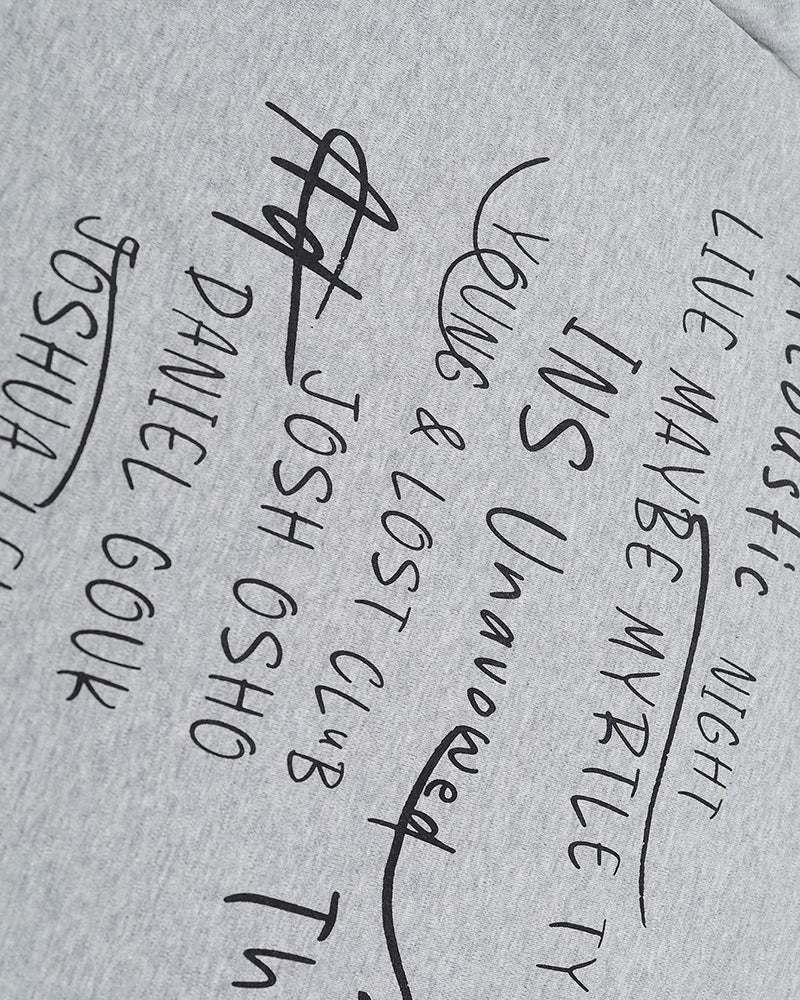 NIGHT
LIVE MAYBE MYRTLE TY
INS Unavowed
YOUNG & LOST CLUB Th
JOSH OSHO
DANIEL GOUK
JOSHUA